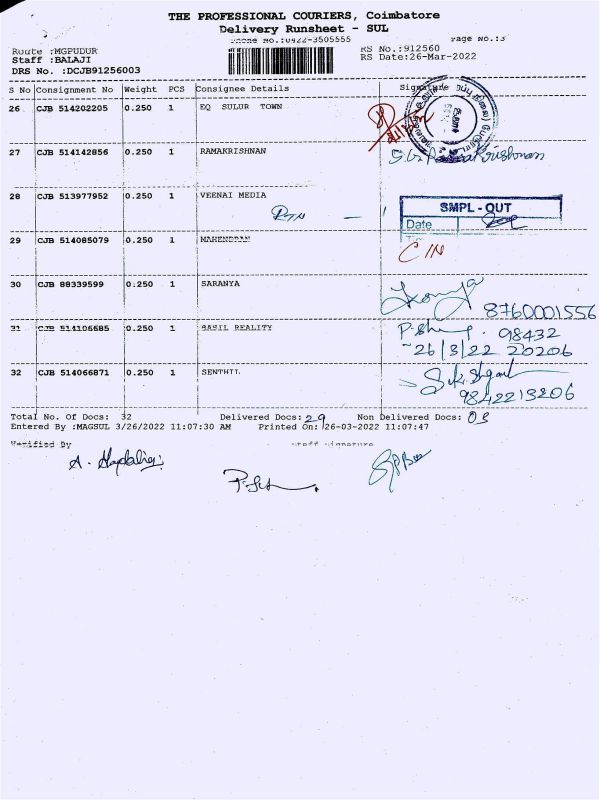 THE PROFESSIONAL COURIERS, Coimbatore
Delivery Runsheet - SUL
Phone No.:0422-3505555 Page No.:3
Route :MGPUDUR RS No.:912560
Staff :BALAJI RS Date:26-Mar-2022
DRS No. :DCJB91256003
S No Consignment No Weight PCS Consignee Details Signature
26 CJB 514202205 0.250 1 EQ SULUR TOWN
27 CJB 514142856 0.250 1 RAMAKRISHNAN
28 CJB 513977952 0.250 1 VEENAI MEDIA
SMPL - OUT
Date
29 CJB 514085079 0.250 1 MAHENDRAN
C/N
30 CJB 88339599 0.250 1 SARANYA
8760001556
31 CJB 514106685 0.250 1 BASIL REALITY 98432
26/3/22 20206
32 CJB 514066871 0.250 1 SENTHIL
9842213206
Total No. Of Docs: 32 Delivered Docs: 29 Non Delivered Docs: 03
Entered By :MAGSUL 3/26/2022 11:07:30 AM Printed On: 26-03-2022 11:07:47
Verified By Staff Signature